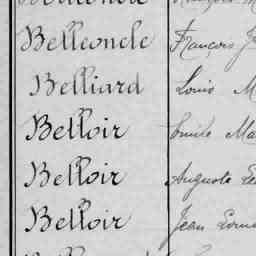 Belleoncle François
Belliard Louis
Belloir Emile
Belloir Auguste
Belloir Jean